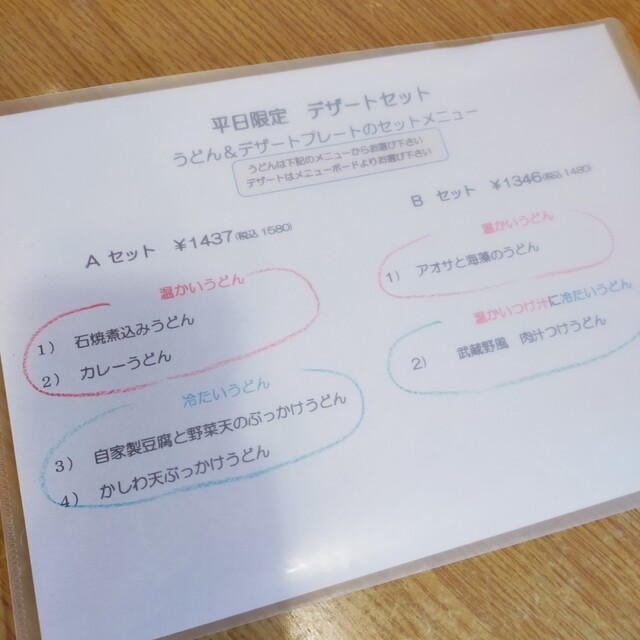 平日限定 デザートセット
うどん＆デザートプレートのセットメニュー
うどんは下記のメニューからお選び下さい
デザートはメニューボードよりお選び下さい
A セット ￥1437(税込1580)
温かいうどん
1) 石焼煮込みうどん
2) カレーうどん
冷たいうどん
3) 自家製豆腐と野菜天のぶっかけうどん
4) かしわ天ぶっかけうどん
B セット ￥1346(税込1480)
温かいうどん
1) アオサと海藻のうどん
温かいつけ汁に冷たいうどん
2) 武蔵野風 肉汁つけうどん